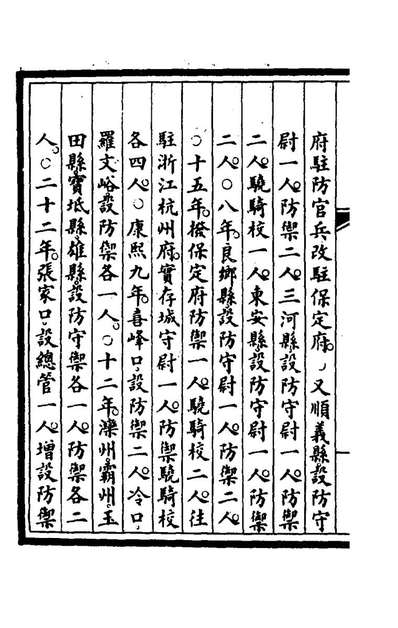 府駐防官兵改駐保定府又順義縣設防守
尉一人防禦二人三河縣設防守尉一人防禦
二人驍騎校一人東安縣設防守尉一人防禦
二人○八年良鄉縣設防守尉一人防禦二人
○十五年撥保定府防禦一人驍騎校二人往
駐浙江杭州府實存城守尉一人防禦驍騎校
各四人○康熙九年喜峰口設防禦二人冷口
羅文峪設防禦各一人○十二年灤州霸州玉
田縣寶坻縣雄縣設防守禦各一人防禦各二
人○二十二年張家口設總管一人增設防禦